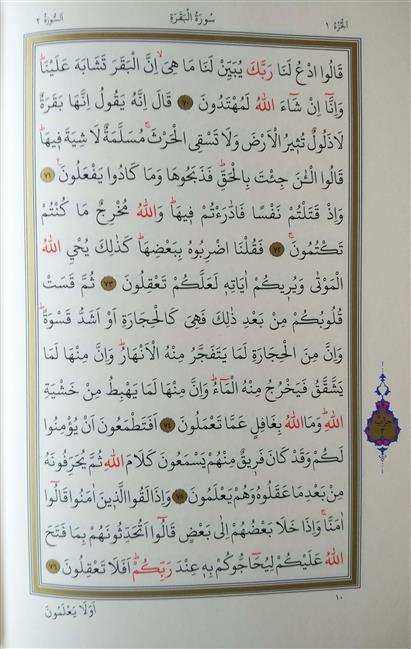 الجزء ١ سورة البقرة السورة ٢
قَالُوا ادْعُ لَنَا رَبَّكَ يُبَيِّنْ لَنَا مَا هِىَۙ اِنَّ الْبَقَرَ تَشَابَهَ عَلَيْنَاۜ
وَاِنَّٓا اِنْ شَٓاءَ اللّٰهُ لَمُهْتَدُونَ ٧٠ قَالَ اِنَّهُ يَقُولُ اِنَّهَا بَقَرَةٌ
لَا ذَلُولٌ تُثِيرُ الْاَرْضَ وَلَا تَسْقِى الْحَرْثَۚ مُسَلَّمَةٌ لَا شِيَةَ فِيهَاۜ
قَالُوا الْـٰٔنَ جِئْتَ بِالْحَقِّۜ فَذَبَحُوهَا وَمَا كَادُوا يَفْعَلُونَ۟ ٧١
وَاِذْ قَتَلْتُمْ نَفْسًا فَادّٰرَءْتُمْ فِيهَاۜ وَاللّٰهُ مُخْرِجٌ مَا كُنْتُمْ
تَكْتُمُونَۚ ٧٢ فَقُلْنَا اضْرِبُوهُ بِبَعْضِهَاۜ كَذٰلِكَ يُحْيِي اللّٰهُ
الْمَوْتٰى وَيُرِيكُمْ اٰيَاتِه۪ لَعَلَّكُمْ تَعْقِلُونَ ٧٣ ثُمَّ قَسَتْ
قُلُوبُكُمْ مِنْ بَعْدِ ذٰلِكَ فَهِىَ كَالْحِجَارَةِ اَوْ اَشَدُّ قَسْوَةًۜ
وَاِنَّ مِنَ الْحِجَارَةِ لَمَا يَتَفَجَّرُ مِنْهُ الْاَنْهَارُۜ وَاِنَّ مِنْهَا لَمَا
يَشَّقَّقُ فَيَخْرُجُ مِنْهُ الْمَٓاءُۜ وَاِنَّ مِنْهَا لَمَا يَهْبِطُ مِنْ خَشْيَةِ
اللّٰهِۜ وَمَا اللّٰهُ بِغَافِلٍ عَمَّا تَعْمَلُونَ ٧٤ اَفَتَطْمَعُونَ اَنْ يُؤْمِنُوا
لَكُمْ وَقَدْ كَانَ فَرِيقٌ مِنْهُمْ يَسْمَعُونَ كَلَامَ اللّٰهِ ثُمَّ يُحَرِّفُونَهُ
مِنْ بَعْدِ مَا عَقَلُوهُ وَهُمْ يَعْلَمُونَ ٧٥ وَاِذَا لَقُوا الَّذِينَ اٰمَنُوا قَالُٓوا
اٰمَنَّاۚ وَاِذَا خَلَا بَعْضُهُمْ اِلٰى بَعْضٍ قَالُٓوا اَتُحَدِّثُونَهُمْ بِمَا فَتَحَ
اللّٰهُ عَلَيْكُمْ لِيُحَٓاجُّوكُمْ بِه۪ عِنْدَ رَبِّكُمْۜ اَفَلَا تَعْقِلُونَ ٧٦
حزب
١٠
اَوَلَا يَعْلَمُونَ